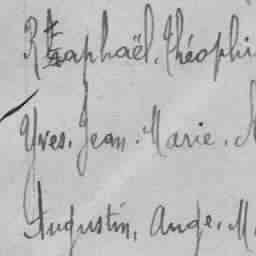 Raphaël, Théophi
Yves. Jean. Marie.
Augustin, Ange. M.